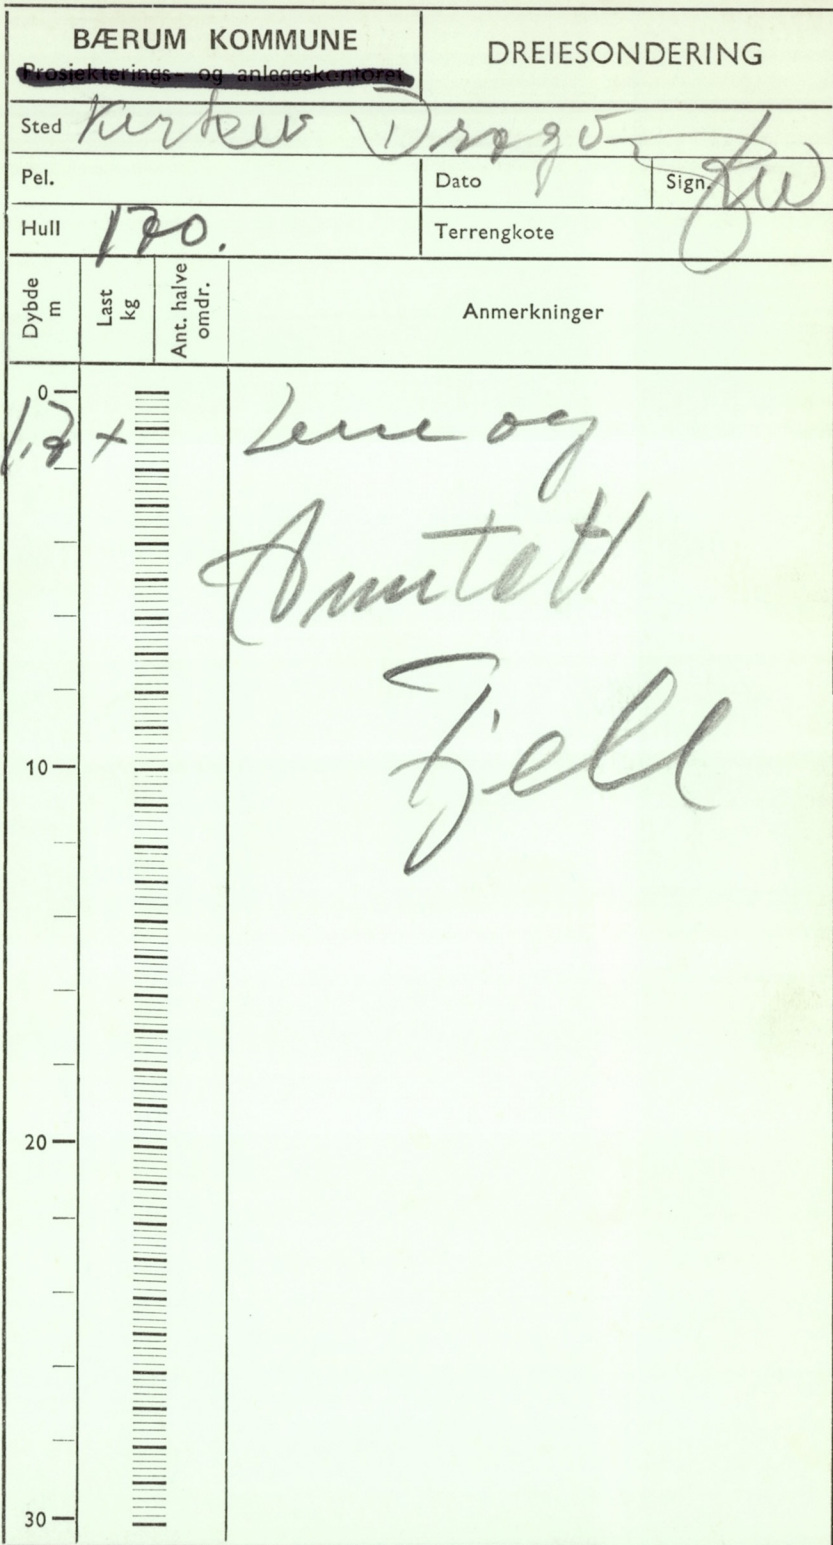 BÆRUM KOMMUNE
Prosjekterings- og anleggskontoret
DREIESONDERING
Sted
Pel.
Dato
Sign.
Hull 170.
Terrengkote
Dybde m
Last kg
Ant. halve omdr.
Anmerkninger
0
1,7 x Leire og
Antatt
Fjell
10
20
30